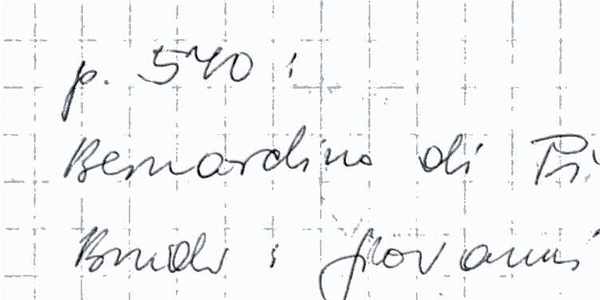 p. 540 :
Bernardino di Pi
Bruder : Giovanni